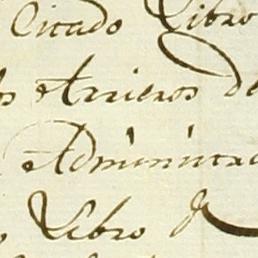 Citado Libro
os Arrieros de
Administrac
Libro